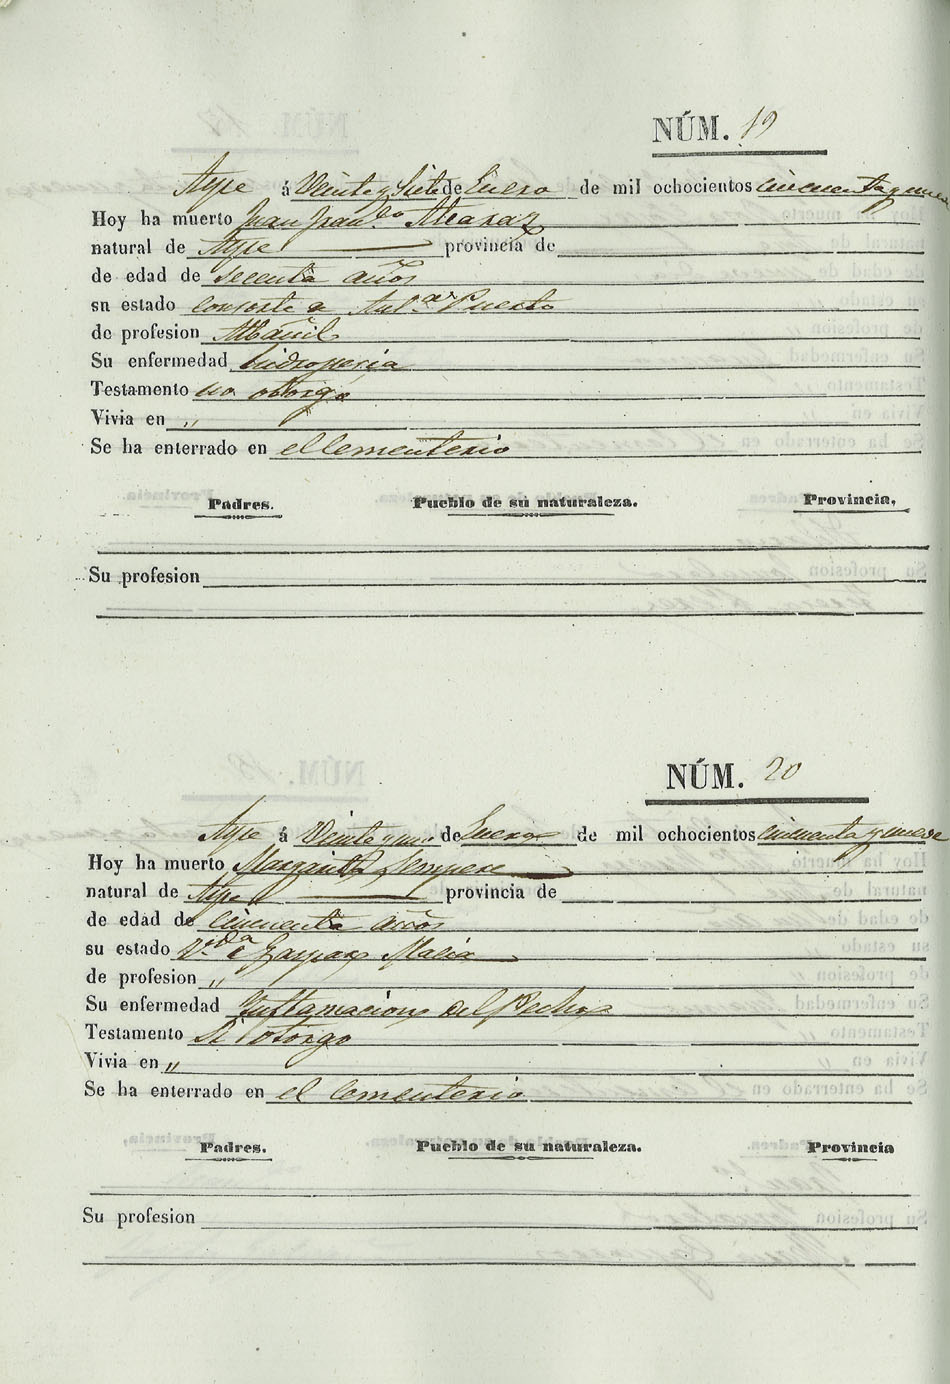 NÚM. 19
Aspe á Veinte y Siete de Enero de mil ochocientos cincuenta y nueve
Hoy ha muerto Juan Fran.co Alcaraz
natural de Aspe provincia de
de edad de secenta años
su estado consorte
de profesion Albañil
Su enfermedad hidropecia
Testamento no otorgó
Vivia en „
Se ha enterrado en el Cementerio
Padres. Pueblo de su naturaleza. Provincia.
Su profesion
NÚM. 20
Aspe á Veinte y de Enero de mil ochocientos cincuenta y nueve
Hoy ha muerto Margarita Sempere
natural de Aspe provincia de
de edad de cincuenta años
su estado V.da Gaspar Maciá
de profesion „
Su enfermedad Inflamacion del Pecho
Testamento Si otorgo
Vivia en „
Se ha enterrado en el Cementerio
Padres. Pueblo de su naturaleza. Provincia
Su profesion